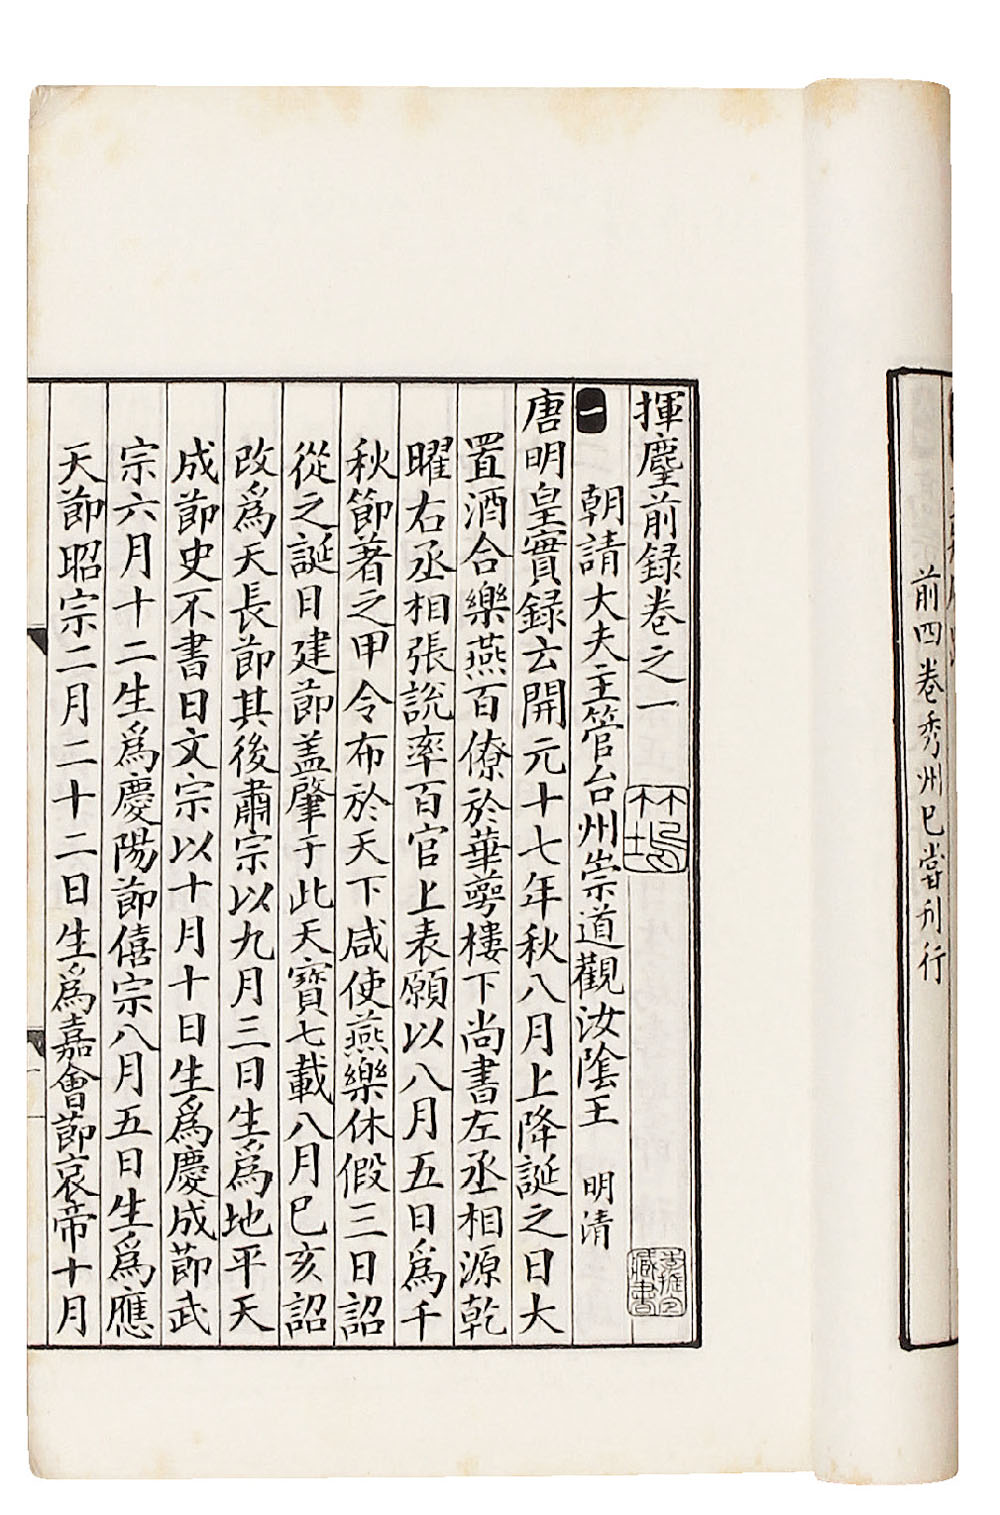 前四卷秀州已嘗刋行
揮麈前録卷之一
一
朝請大夫主管台州崇道觀汝隂王 明清
唐明皇實録云開元十七年秋八月上降誕之日大
置酒合樂燕百僚於華萼樓下尚書左丞相源乾
曜右丞相張説率百官上表願以八月五日爲千
秋節著之甲令布於天下咸使燕樂休假三日詔
從之誕日建節盖肇于此天寶七載八月已亥詔
改爲天長節其後肅宗以九月三日生爲地平天
成節史不書日文宗以十月十日生爲慶成節武
宗六月十二生爲慶陽節僖宗八月五日生爲應
天節昭宗二月二十二日生爲嘉會節哀帝十月
藏書